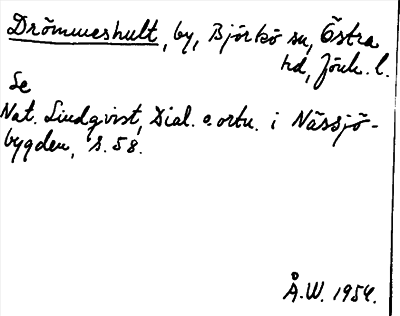 Drömmeshult, by, Björkö sn, Östra
hd, Jönk. l.
Se
Nat. Lindqvist, Dial. o. ortn. i Nässjö-
bygden, s. 58.
Å.W. 1954.